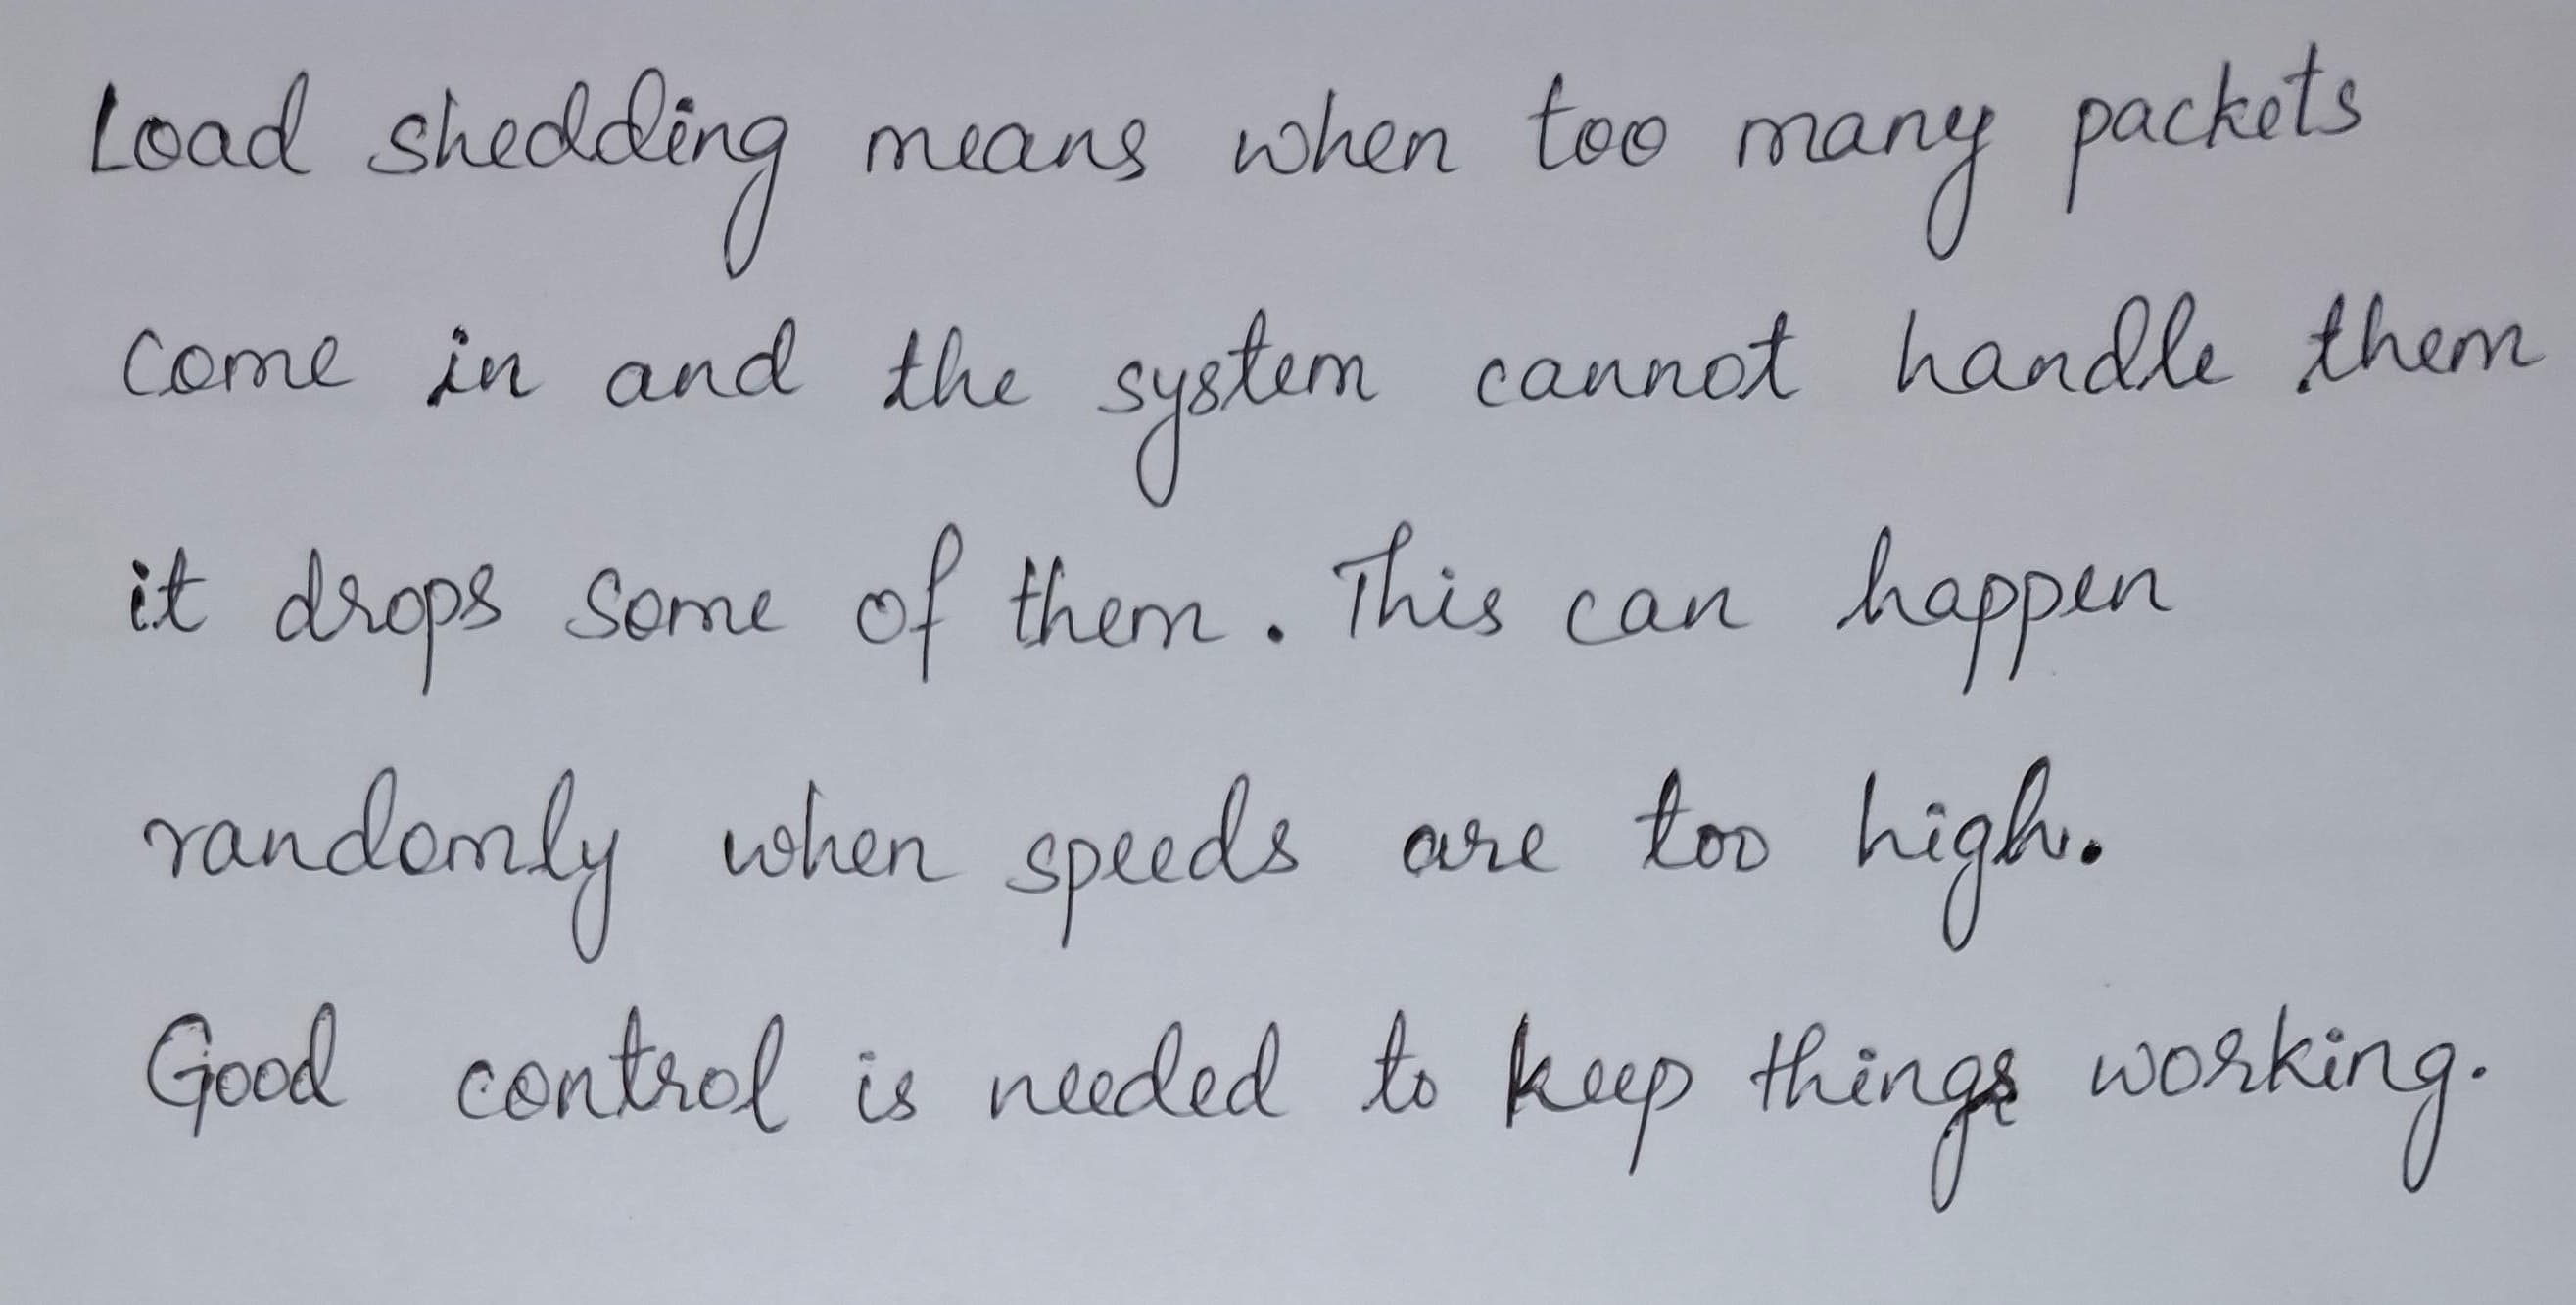 Load shedding means when too many packets
come in and the system cannot handle them
it drops some of them. This can happen
randomly when speeds are too high.
Good control is needed to keep things working.